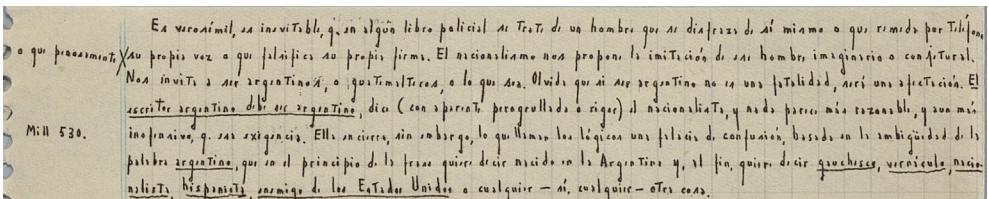 Es verosímil, es inevitable, q. en algún libro policial se trate de un hombre que se disfraza de sí mismo o que remeda por teléfono
o que penosamente su propia voz o que falsifica su propia firma. El nacionalismo nos propone la imitación de ese hombre imaginario o conjetural.
Nos invita a ser argentinos, o guatemaltecos, o lo que sea. Olvida que si ser argentino no es una fatalidad, será una afectación. El
escritor argentino debe ser argentino, dice (con aparente perogrullada o rigor) el nacionalista, y nada parece más razonable, y aun más
Mill 530. inofensivo, q. esa exigencia. Ella encierra, sin embargo, lo que llaman los lógicos una falacia de confusión, basada en la ambigüedad de la
palabra argentino, que en el principio de la frase quiere decir nacido en la Argentina y, al fin, quiere decir gauchesco, vernáculo, nacio-
nalista, hispanista, enemigo de los Estados Unidos o cualquier — sí, cualquier — otra cosa.